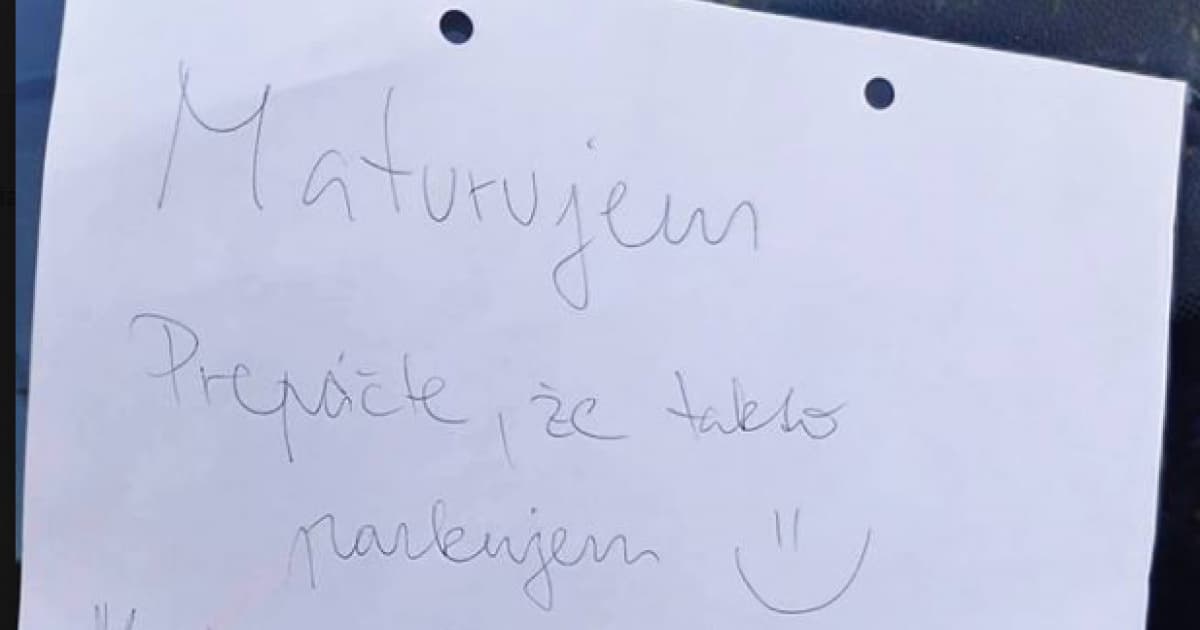 Maturujem
Prepáčte, že takto
parkujem